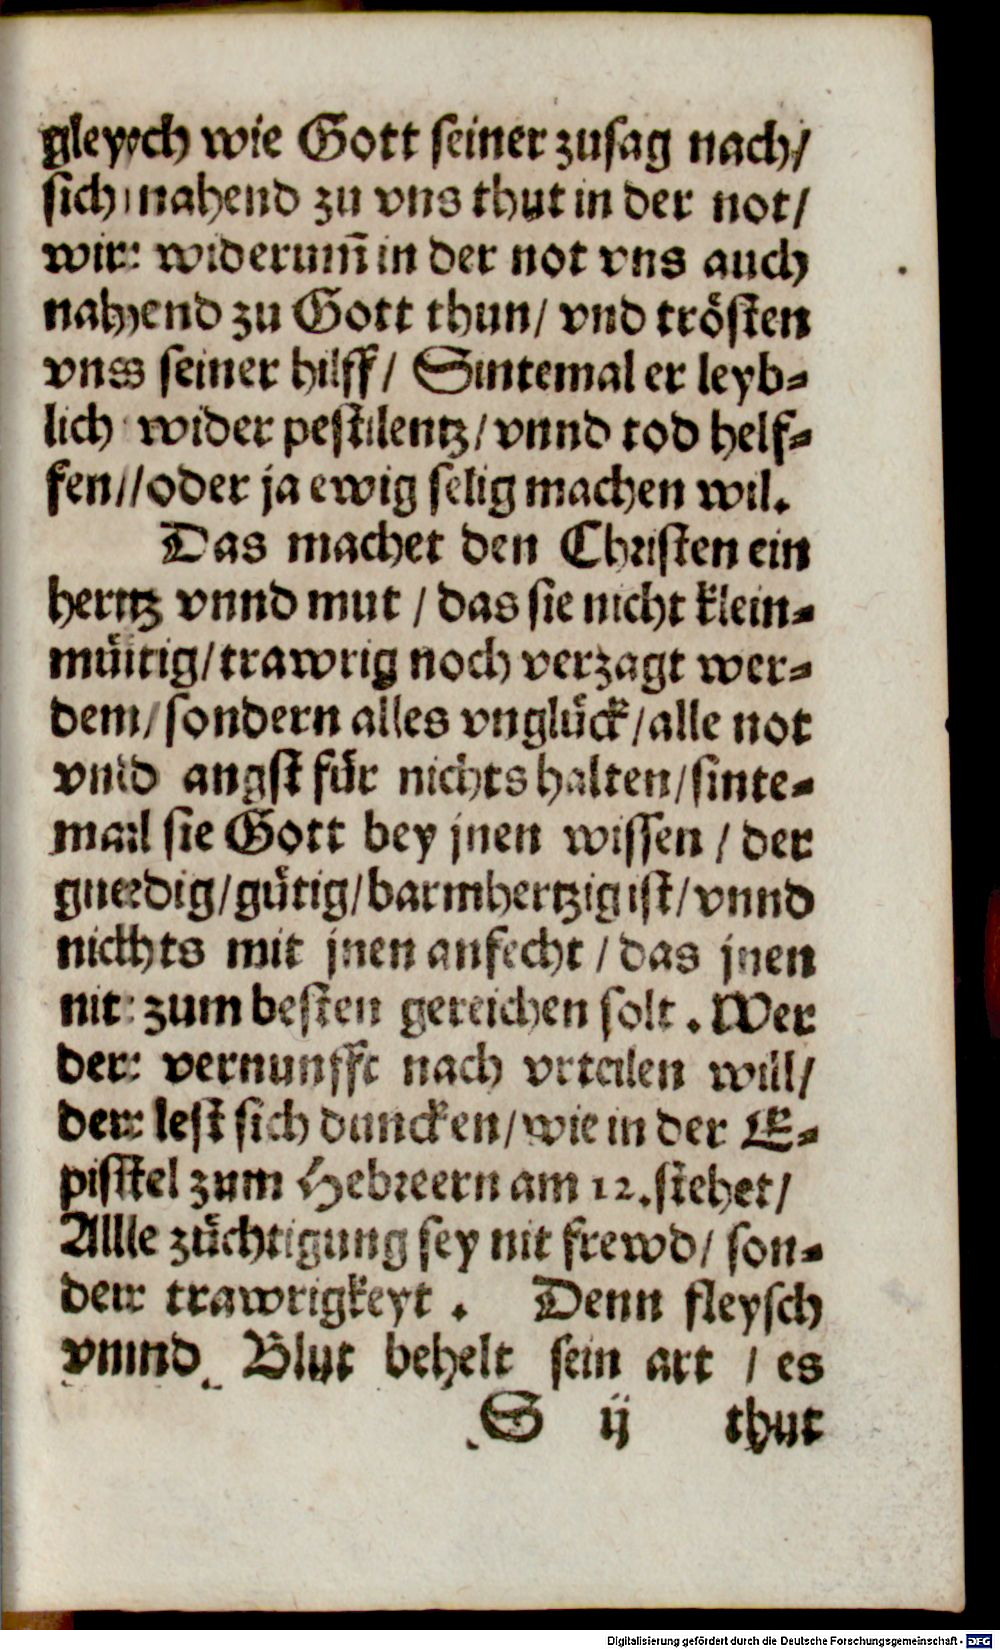 gleych wie Gott seiner zusag nach/
sich nahend zu vns thut in der not/
wir widerumm̄ in der not vns auch
nahend zu Gott thun/ vnd trösten
vns seiner hilff/ Sintemal er leyb-
lich wider pestilentz/ vnnd tod helf-
fen//oder ja ewig selig machen wil.
Das machet den Christen ein
hertz vnnd mut / das sie nicht klein-
mütig/trawrig noch verzagt wer-
den/sondern alles vnglück/alle not
vnd angst für nichts halten/sinte-
mal sie Gott bey jnen wissen / der
gnedig/gütig/barmhertzig ist/vnnd
nichts mit jnen anfecht / das jnen
nit zum besten gereichen solt. Wer
der vernunfft nach vrteilen will/
der lest sich duncken/wie in der E-
pistel zum Hebreern am 12. stehet/
Alle züchtigung sey nit frewd/ son-
der trawrigkeyt. Denn fleysch
vnnd Blut behelt sein art / es
S ij thut
Digitalisierung gefördert durch die Deutsche Forschungsgemeinschaft - DFG